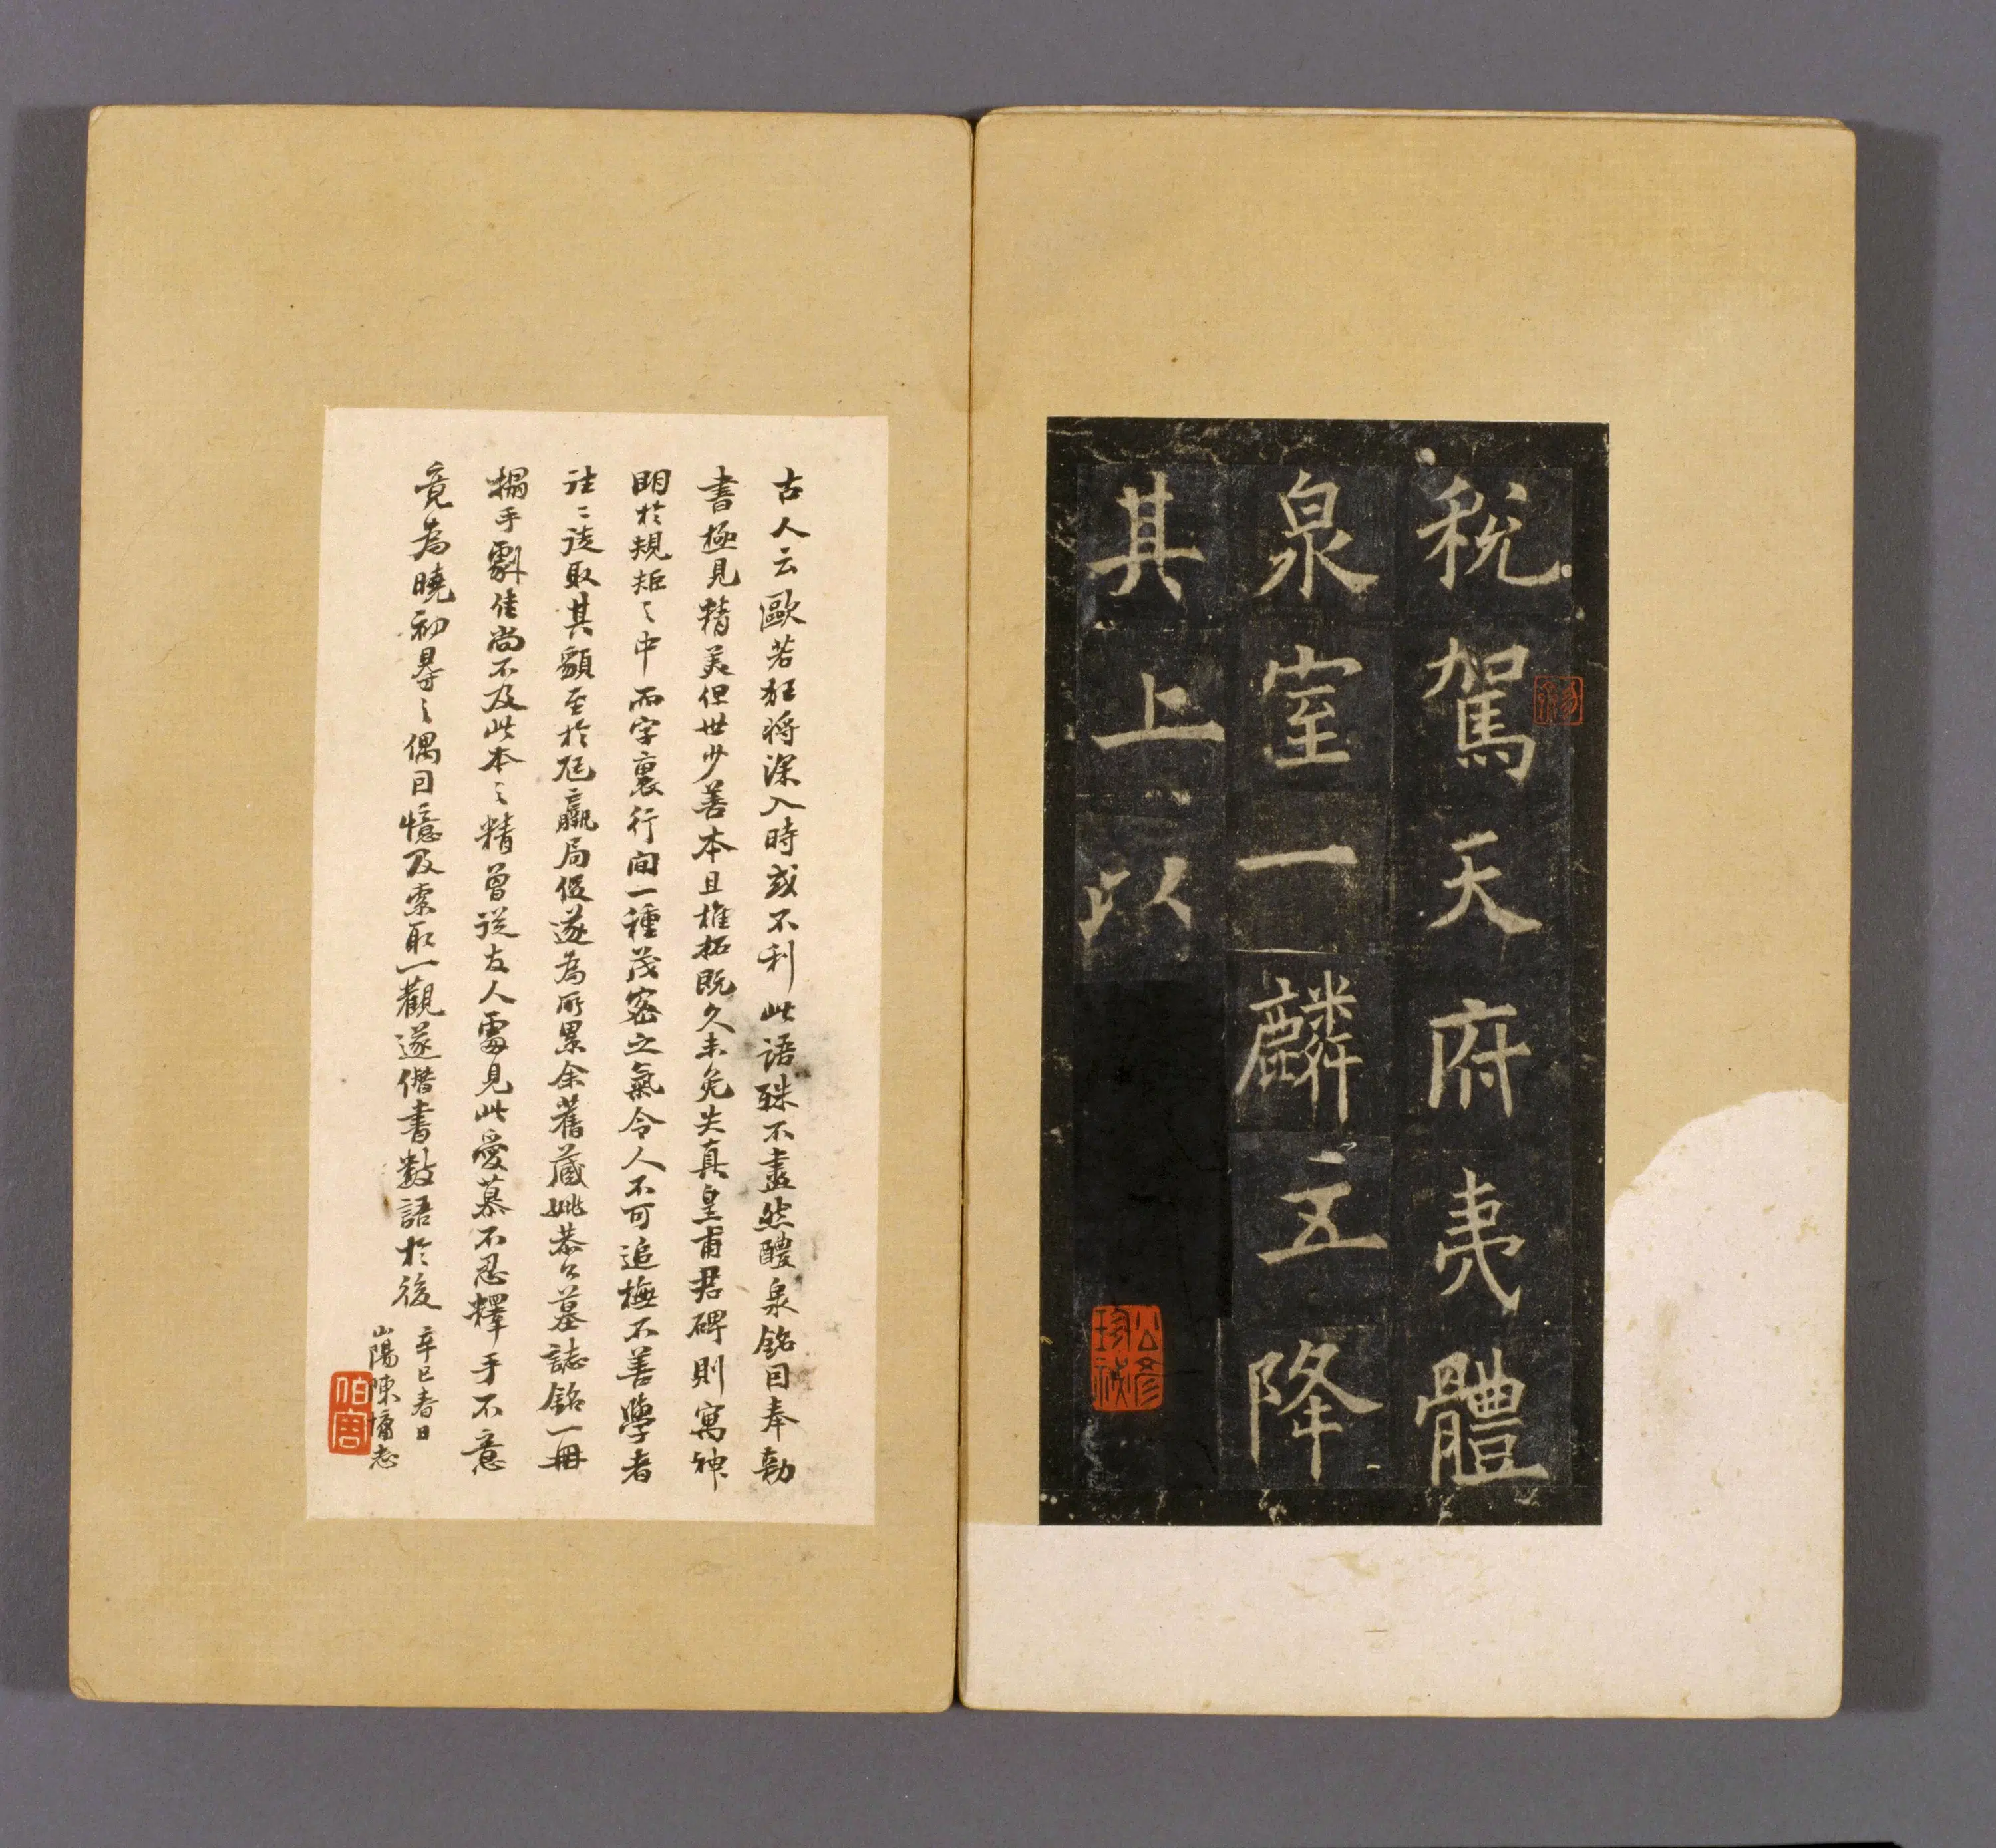 稅駕天府夷體
泉室一麟立降
其上以
公修珍祕
古人云歐若狂將深入時或不利此語殊不盡然醴泉銘因奉勅
書極見精美但世少善本且椎拓既久未免失真皇甫君碑則寓神
明於規矩之中而字裏行間一種茂密之氣令人不可追撫不善學者
往往徒取其貌至於尫羸局促遂為所累余舊藏姚恭公墓誌銘一冊
搨手劇佳尚不及此本之精曾從友人處見此愛慕不忍釋手不意
竟為曉初㝵之偶因憶及索取一觀遂僭書數語於後
辛巳春日
山陽陳慵志